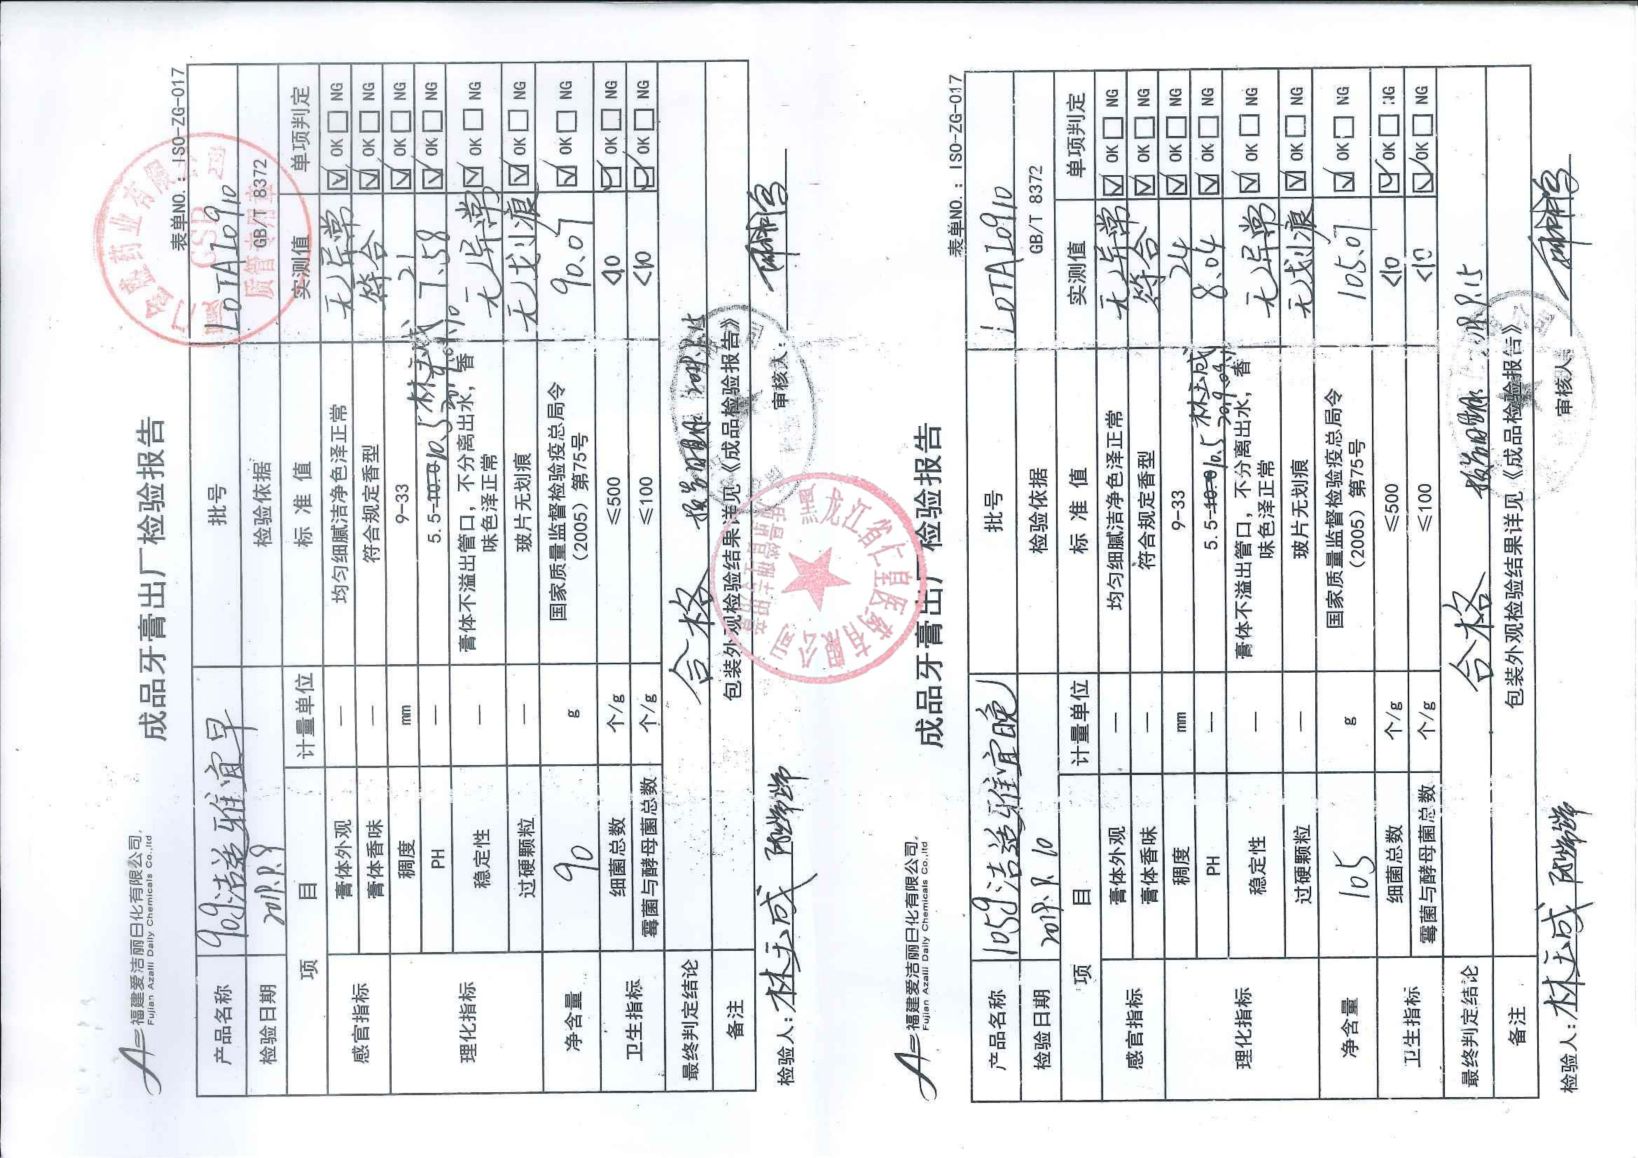 福建爱洁丽日化有限公司
Fujian Azalli Daily Chemicals Co.,ltd
成品牙膏出厂检验报告
表单NO.：ISO-ZG-017
产品名称 90g洁 雅宜早 批号 LOTA10910
检验日期 GB/T 8372
检验依据
项 目 计量单位 标 准 值 实测值 单项判定
感官指标 膏体外观 — 均匀细腻洁净色泽正常 无异常 ☑ OK □ NG
膏体香味 — 符合规定香型 符合 ☑ OK □ NG
理化指标 稠度 mm 9-33 21 ☑ OK □ NG
PH — 5.5-10.0 10.5 林玉成 7.58 ☑ OK □ NG
稳定性 — 膏体不溢出管口，不分离出水，香 无异常 ☑ OK □ NG
味色泽正常
过硬颗粒 — 玻片无划痕 无划痕 ☑ OK □ NG
净含量 90 g 国家质量监督检验疫总局令 90.07 ☑ OK □ NG
（2005）第75号
卫生指标 细菌总数 个/g ≤500 <10 ☑ OK □ NG
霉菌与酵母菌总数 个/g ≤100 <10 ☑ OK □ NG
最终判定结论 合格
备注 包装外观检验结果详见《成品检验报告》
检验人：林玉成 审核人：
福建爱洁丽日化有限公司
Fujian Azalli Daily Chemicals Co.,ltd
成品牙膏出厂检验报告
表单NO.：ISO-ZG-017
产品名称 105g洁 雅宜晚 批号 LOTA10910
检验日期 检验依据 GB/T 8372
项 目 计量单位 标 准 值 实测值 单项判定
感官指标 膏体外观 — 均匀细腻洁净色泽正常 无异常 ☑ OK □ NG
膏体香味 — 符合规定香型 符合 ☑ OK □ NG
理化指标 稠度 mm 9-33 24 ☑ OK □ NG
PH — 5.5-10.0 10.5 林玉成 8.04 ☑ OK □ NG
稳定性 — 膏体不溢出管口，不分离出水，香 无异常 ☑ OK □ NG
味色泽正常
过硬颗粒 — 玻片无划痕 无划痕 ☑ OK □ NG
净含量 105 g 国家质量监督检验疫总局令 105.07 ☑ OK □ NG
（2005）第75号
卫生指标 细菌总数 个/g ≤500 <10 ☑ OK □ NG
霉菌与酵母菌总数 个/g ≤100 <10 ☑ OK □ NG
最终判定结论 合格
备注 包装外观检验结果详见《成品检验报告》
检验人：林玉成 审核人
黑龙江省仁皇医药有限公司
质量管理专用章
药业有限
GSP
质管专用章